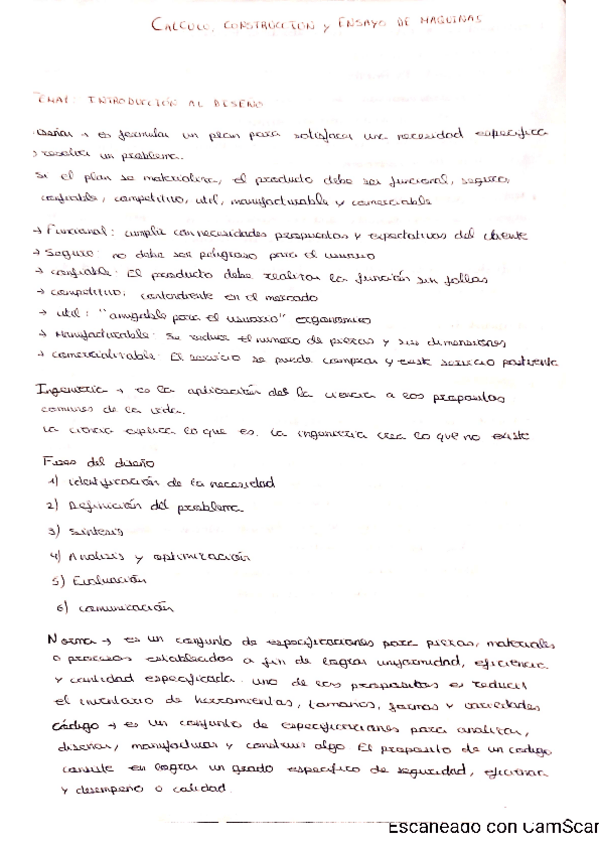 CALCULO, CONSTRUCCION y ENSAYO DE MAQUINAS
TEMA1: INTRODUCCIÓN AL DISEÑO
Diseñar → es formular un plan para satisfacer una necesidad especifica
y resolver un problema.
Si el plan se materializa, el producto debe ser funcional, seguro,
confiable, competitivo, util, manufacturable y comerciable
→ Funcional: cumplir con necesidades propuestas y expectativas del cliente
→ Seguro: no debe ser peligroso para el usuario
→ confiable: El producto debe realizar la función sin fallas
→ competitivo: contendiente en el mercado
→ util: "amigable para el usuario" ergonomico
→ Manufacturable: Se reduce el numero de piezas y sus dimensiones
→ comercializable: El servicio se puede comprar y existe servicio postventa
Ingenieria → es la aplicación del la ciencia a los propositos
comunes de la vida.
La ciencia explica lo que es, la ingenieria crea lo que no existe
Fases del diseño
1) Identificación de la necesidad
2) Definición del problema
3) Sintesis
4) Analisis y optimización
5) Evaluación
6) comunicación
Norma → es un conjunto de especificaciones para piezas, materiales
o procesos establecidos a fin de lograr uniformidad, eficiencia
y cantidad especificada. uno de los propositos es reducir
el inventario de herramientas, tamaños, formas y variedades
código → es un conjunto de especificaciones para analizar,
diseñar, manufacturar y construir algo El proposito de un codigo
consiste en lograr un grado especifico de seguridad, eficiencia
y desempeño o calidad.
Escaneado con CamScan